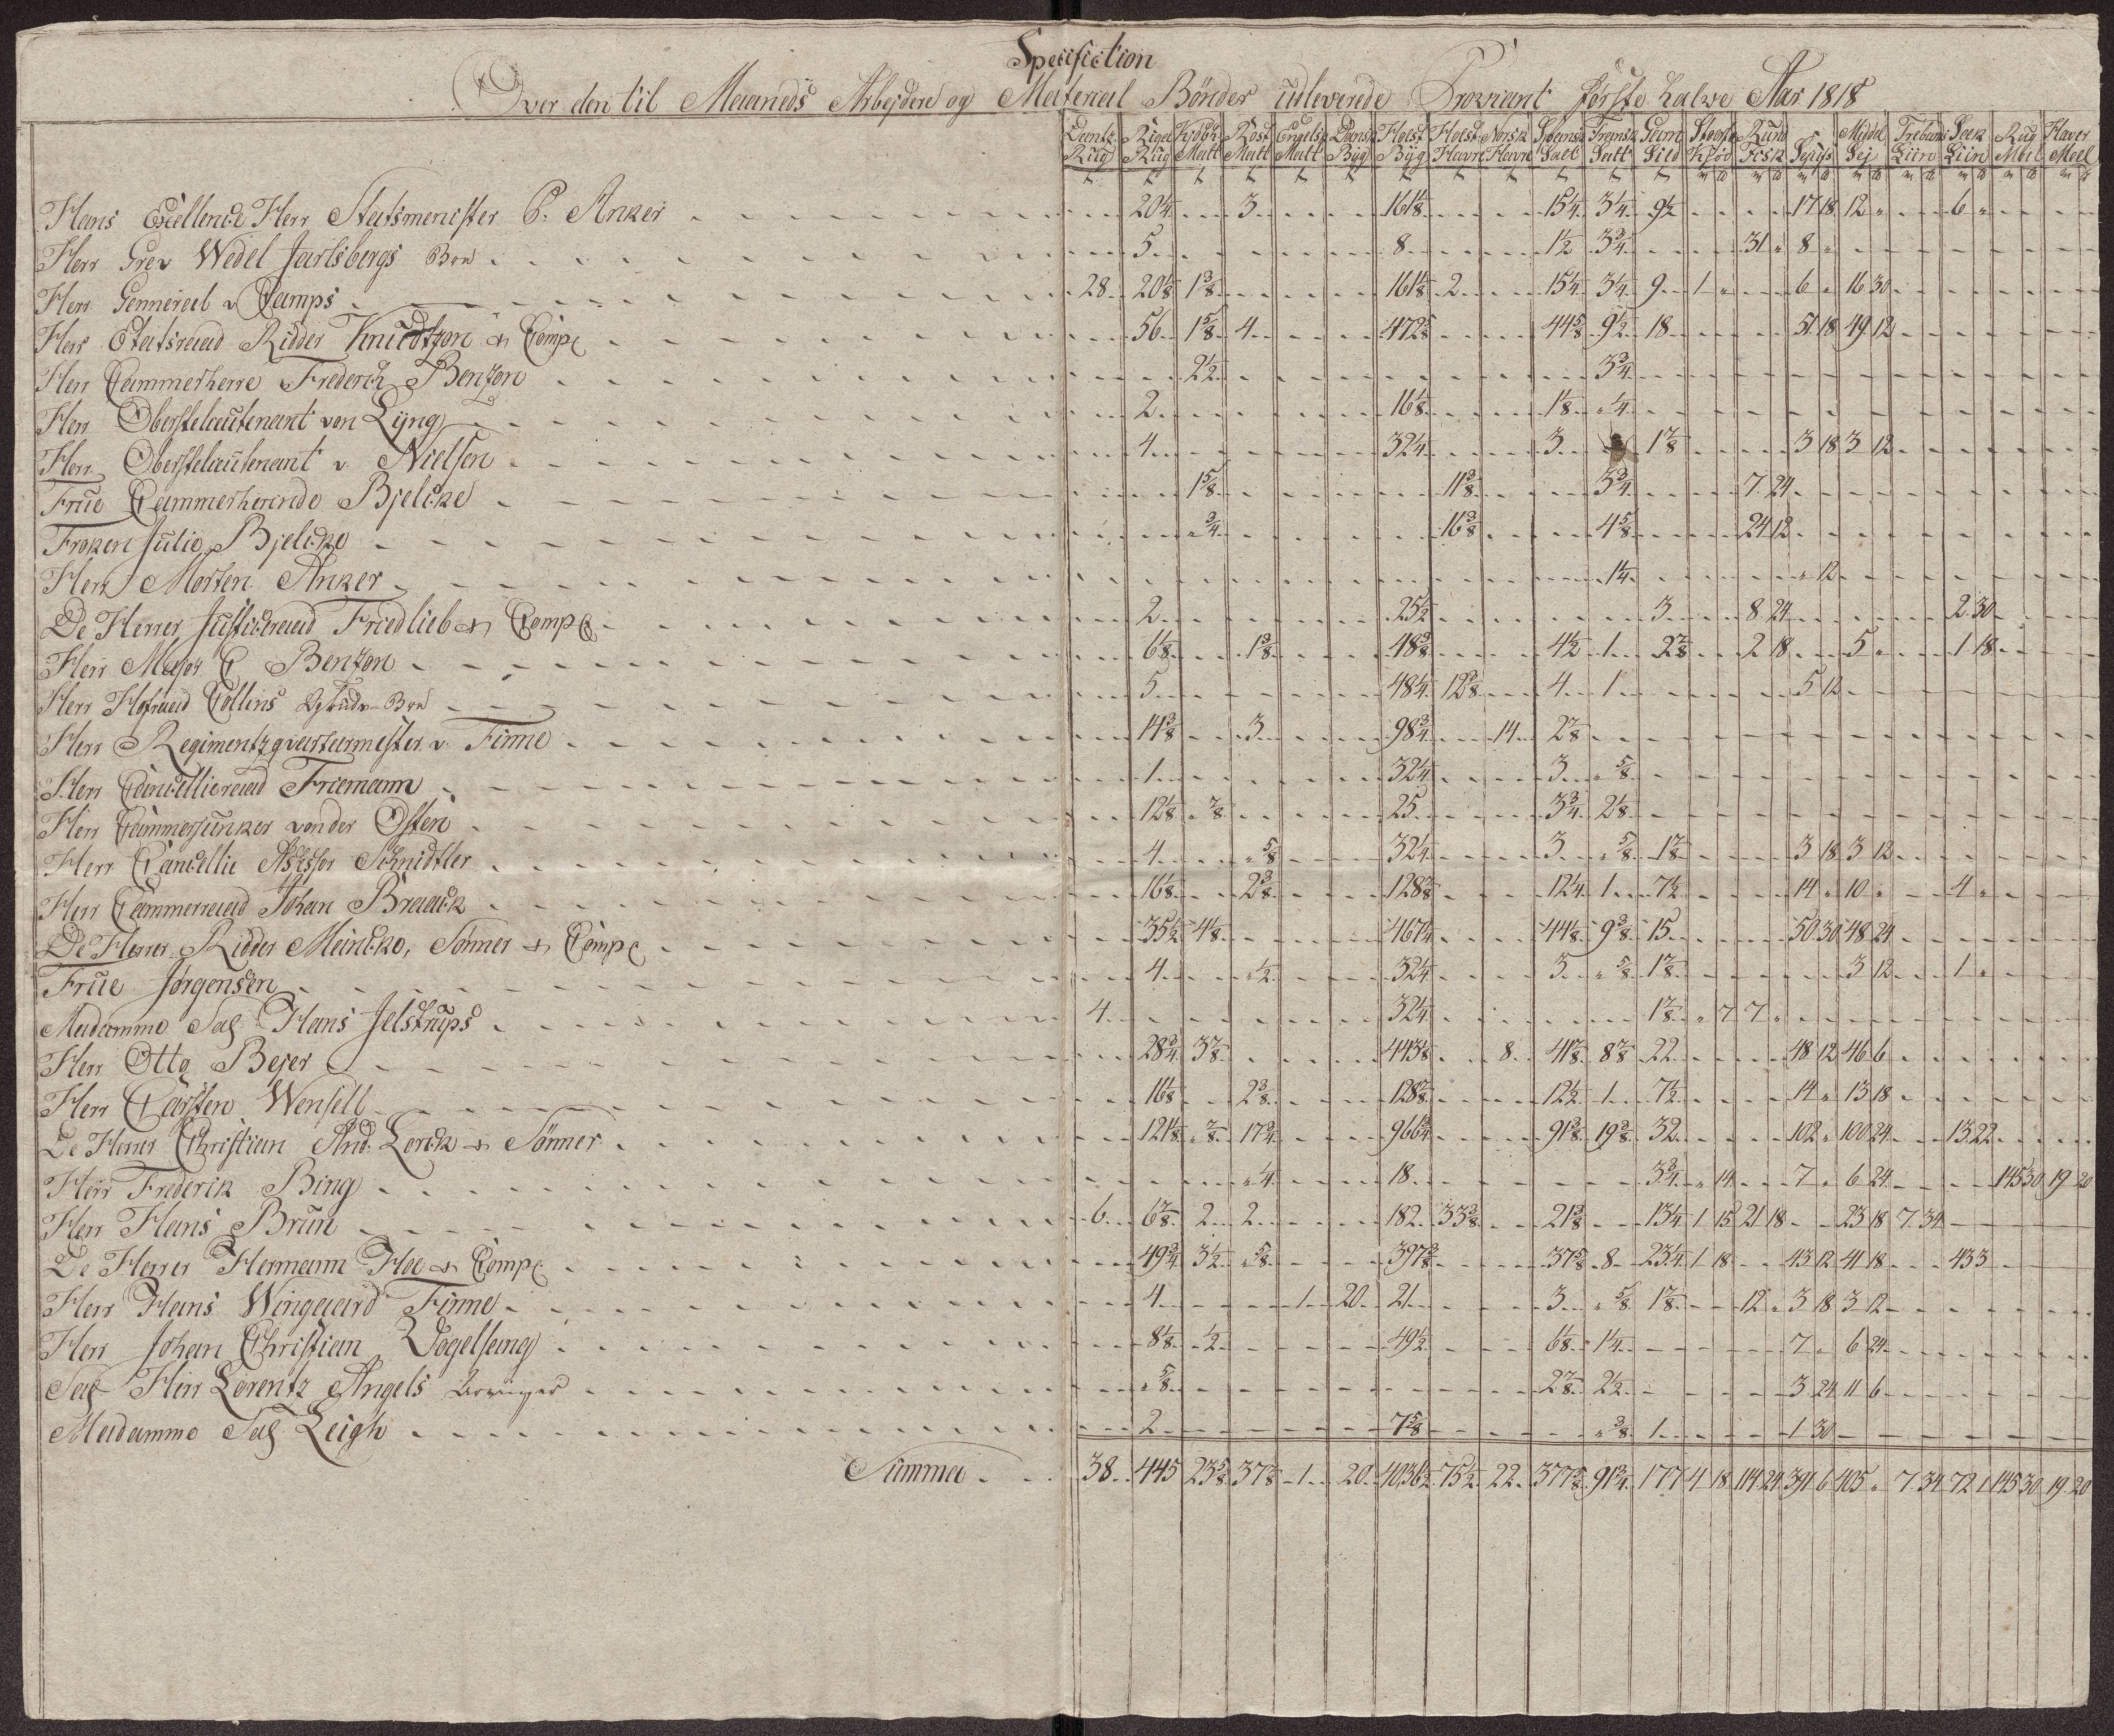 Specifiction
Over den til Maaneds Arbejdere og Material Bönder udleverede Proviant första halve Aar 1818
Dantz Rug Rigel Rug Malt Rost Malt Engelsk Malt Dansk Byg Holst Byg Holst Havre Norsk Havre Spansk Salt Fransk Salt Sild Kjød Rund Fisk Middel Sej Liin Liin Rug Meel Haver Meel
Hans Excellence Herr Statsmenister C. Anker 20¼ 3 161⅛ 15¼ 3¼ 9½ 17 18 12 " 6 "
Herr Grev Wedel Jarlsbergs Boe 5 8 1½ 3¾ 31 " 8 "
Herr Gennerael v Camps 28 20⅛ 1⅜ 161⅛ 2 15¼ 3¼ 9 1 " 6 " 16 30
Herr Etatsraad Ridder Knudtzon & Comp 56 1⅝ 4 472⅝ 44⅝ 9½ 18 51 18 49 12
Herr Cammerherre Frederik Benzon 2½ 3¾
Herr Oberstelautenant von Lyng 2 16⅛ 1⅛ " ¼
Herr Oberstelautenant v. Nielsen 4 32¼ 3 1⅞ 3 18 3 12
Frue Cammerherinde Bjelcke 1⅝ 11⅜ 3¾ 7 24
Frøken Julie Bjelcke " ¾ 16⅜ 4⅝ 24 12
Herr Morten Anker 1¼ " 12
De Herrer Justiceraad Friedlieb & Comp 2 25½ 3 8 24 2 30
Herr Major C Benzon 6⅛ 1⅜ 48⅜ 4½ 1 2⅞ 2 18 5 " 1 18
Herr Hofraad Collins Boe 5 48¼ 12⅜ 4 1 5 12
Herr Regimentzqvartermester v. Finne 14⅜ 3 98¾ 14 2⅞
Herr Cancellieraad Friemann 1 32¼ 3 " ⅝
Herr Cammerjunker von der Osten 12⅛ " ⅞ 25 3¾ 2⅛
Herr Cancellie Assessor Schnidtler 4 " ⅝ 32¼ 3 " ⅝ 1⅞ 3 18 3 12
Herr Cammerraad Johan Braack 16⅛ 2⅜ 128⅞ 12¼ 1 7½ 14 " 10 " 4 "
De Herrer Ridder Meincke, Sønner & Comp 35½ 4⅛ 467¼ 44⅛ 9⅜ 15 50 30 48 24
Frue Jørgensen 4 " ½ 32¼ 3 " ⅝ 1⅞ 3 12 1 "
Madamme Sal Hans Jelstrups 4 32¼ 1⅞ " 7 7 "
Herr Otto Bejer 28¾ 3⅞ 443⅛ 8 41⅞ 8⅞ 22 48 12 46 6
Herr Carsten Wensell 16⅛ 2⅜ 128⅞ 12½ 1 7½ 14 " 13 18
De Herrer Christian And. Lorck & Sönner 121⅛ " ⅞ 17¾ 966¾ 91⅜ 19⅜ 32 102 " 100 24 13 22
Herr Frederik Bing " ¼ 18 3¾ " 14 7 " 6 24 145 30 19 20
Herr Hans Brun 6 6⅞ 2 2 182 33⅜ 21⅜ 13¼ 1 15 21 18 23 18 7 34
De Herrer Hermann Hoe & Comp 49¾ 3½ " ⅝ 397⅜ 37⅝ 8 23¼ 1 18 43 12 41 18 43 3
Herr Hans Wingaard Finne 4 1 20 21 3 " ⅝ 1⅞ 12 " 3 18 3 12
Herr Johan Christian Vogelsang 8⅛ ½ 49½ 6⅛ 1¼ 7 " 6 24
Sal Herr Lorentz Angels Arvinger " ⅝ 2⅞ 2½ 3 24 11 6
Madamme Sal Leigh 2 7⅝ " ⅜ 1 1 30
Summa 38 445 23⅝ 37⅞ 1 20 4036½ 75½ 22 377⅝ 91¾ 177 4 18 114 24 391 6 405 " 7 34 72 1 145 30 19 20